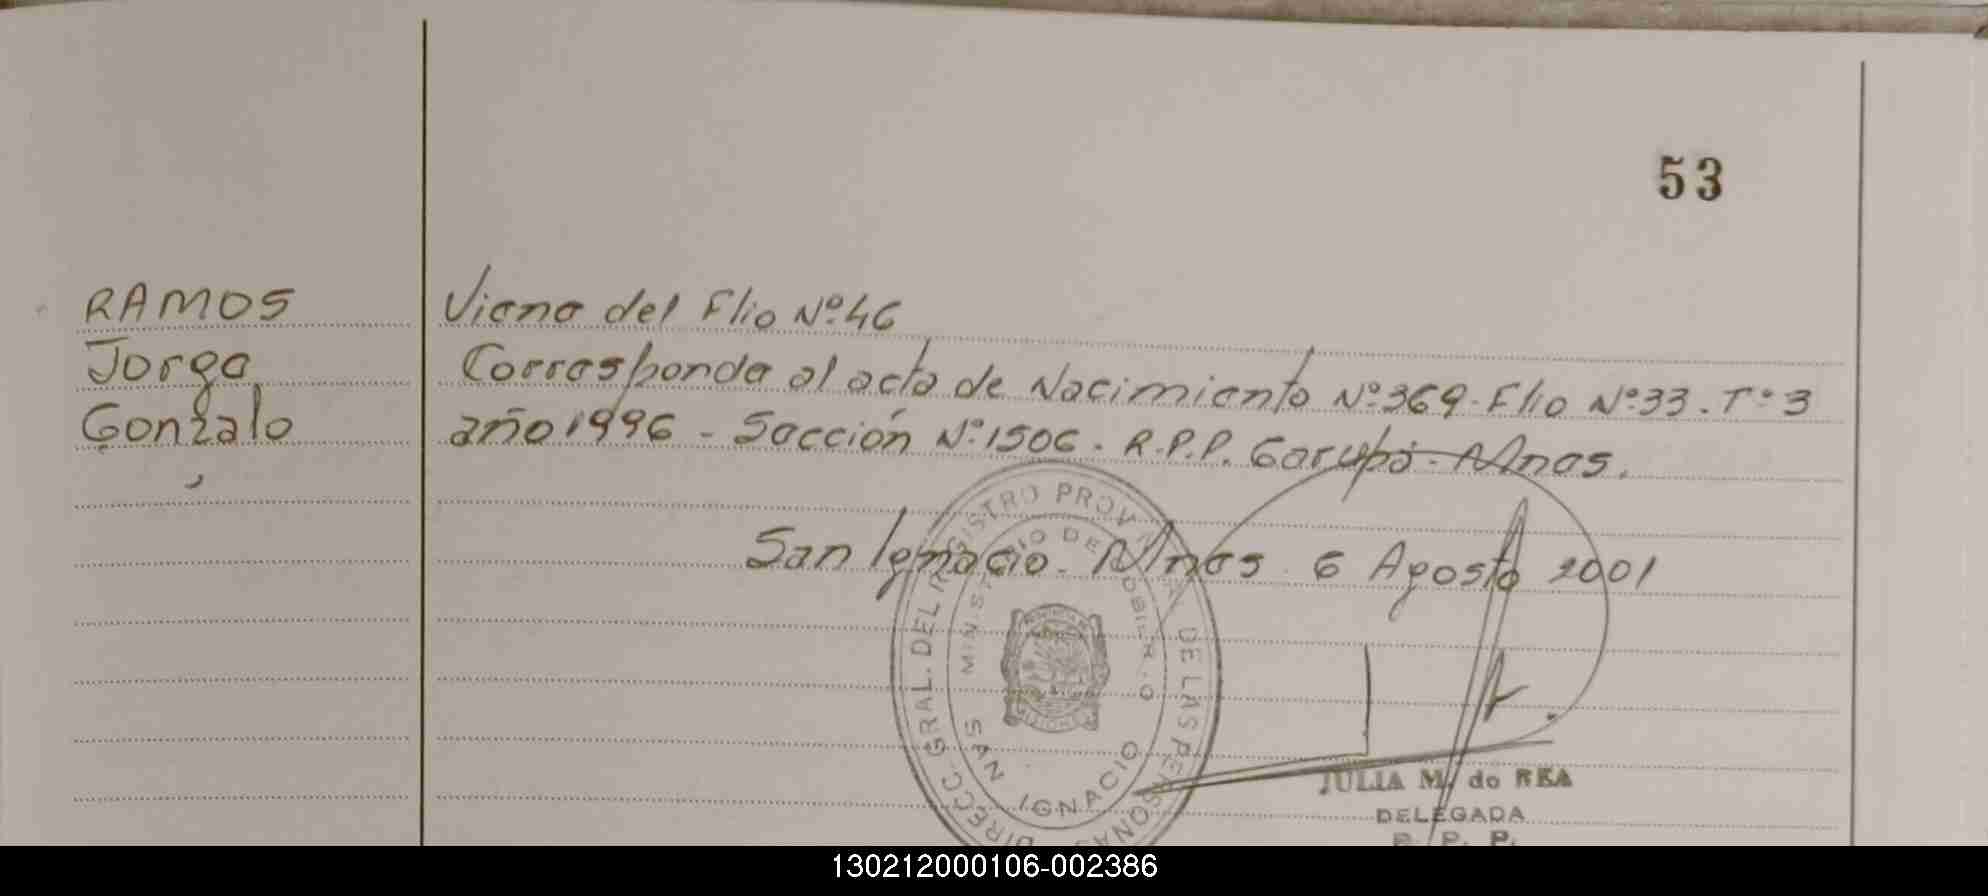 53
RAMOS
Jorge
Gonzalo
Viene del Flio Nº 46
Corresponde al acta de Nacimiento Nº 369. Flio Nº 33. Tº 3
año 1996 - Sección Nº 1506. R.P.P. Garupá. Mnes.
San Ignacio. Mnes. 6 Agosto 2001
DIRECC. GRAL. DEL REGISTRO PROV. DE LAS PERSONAS
MINISTERIO DE GOBIERNO
SAN IGNACIO
JULIA M. do REA
DELEGADA
R. P. P.
130212000106-002386